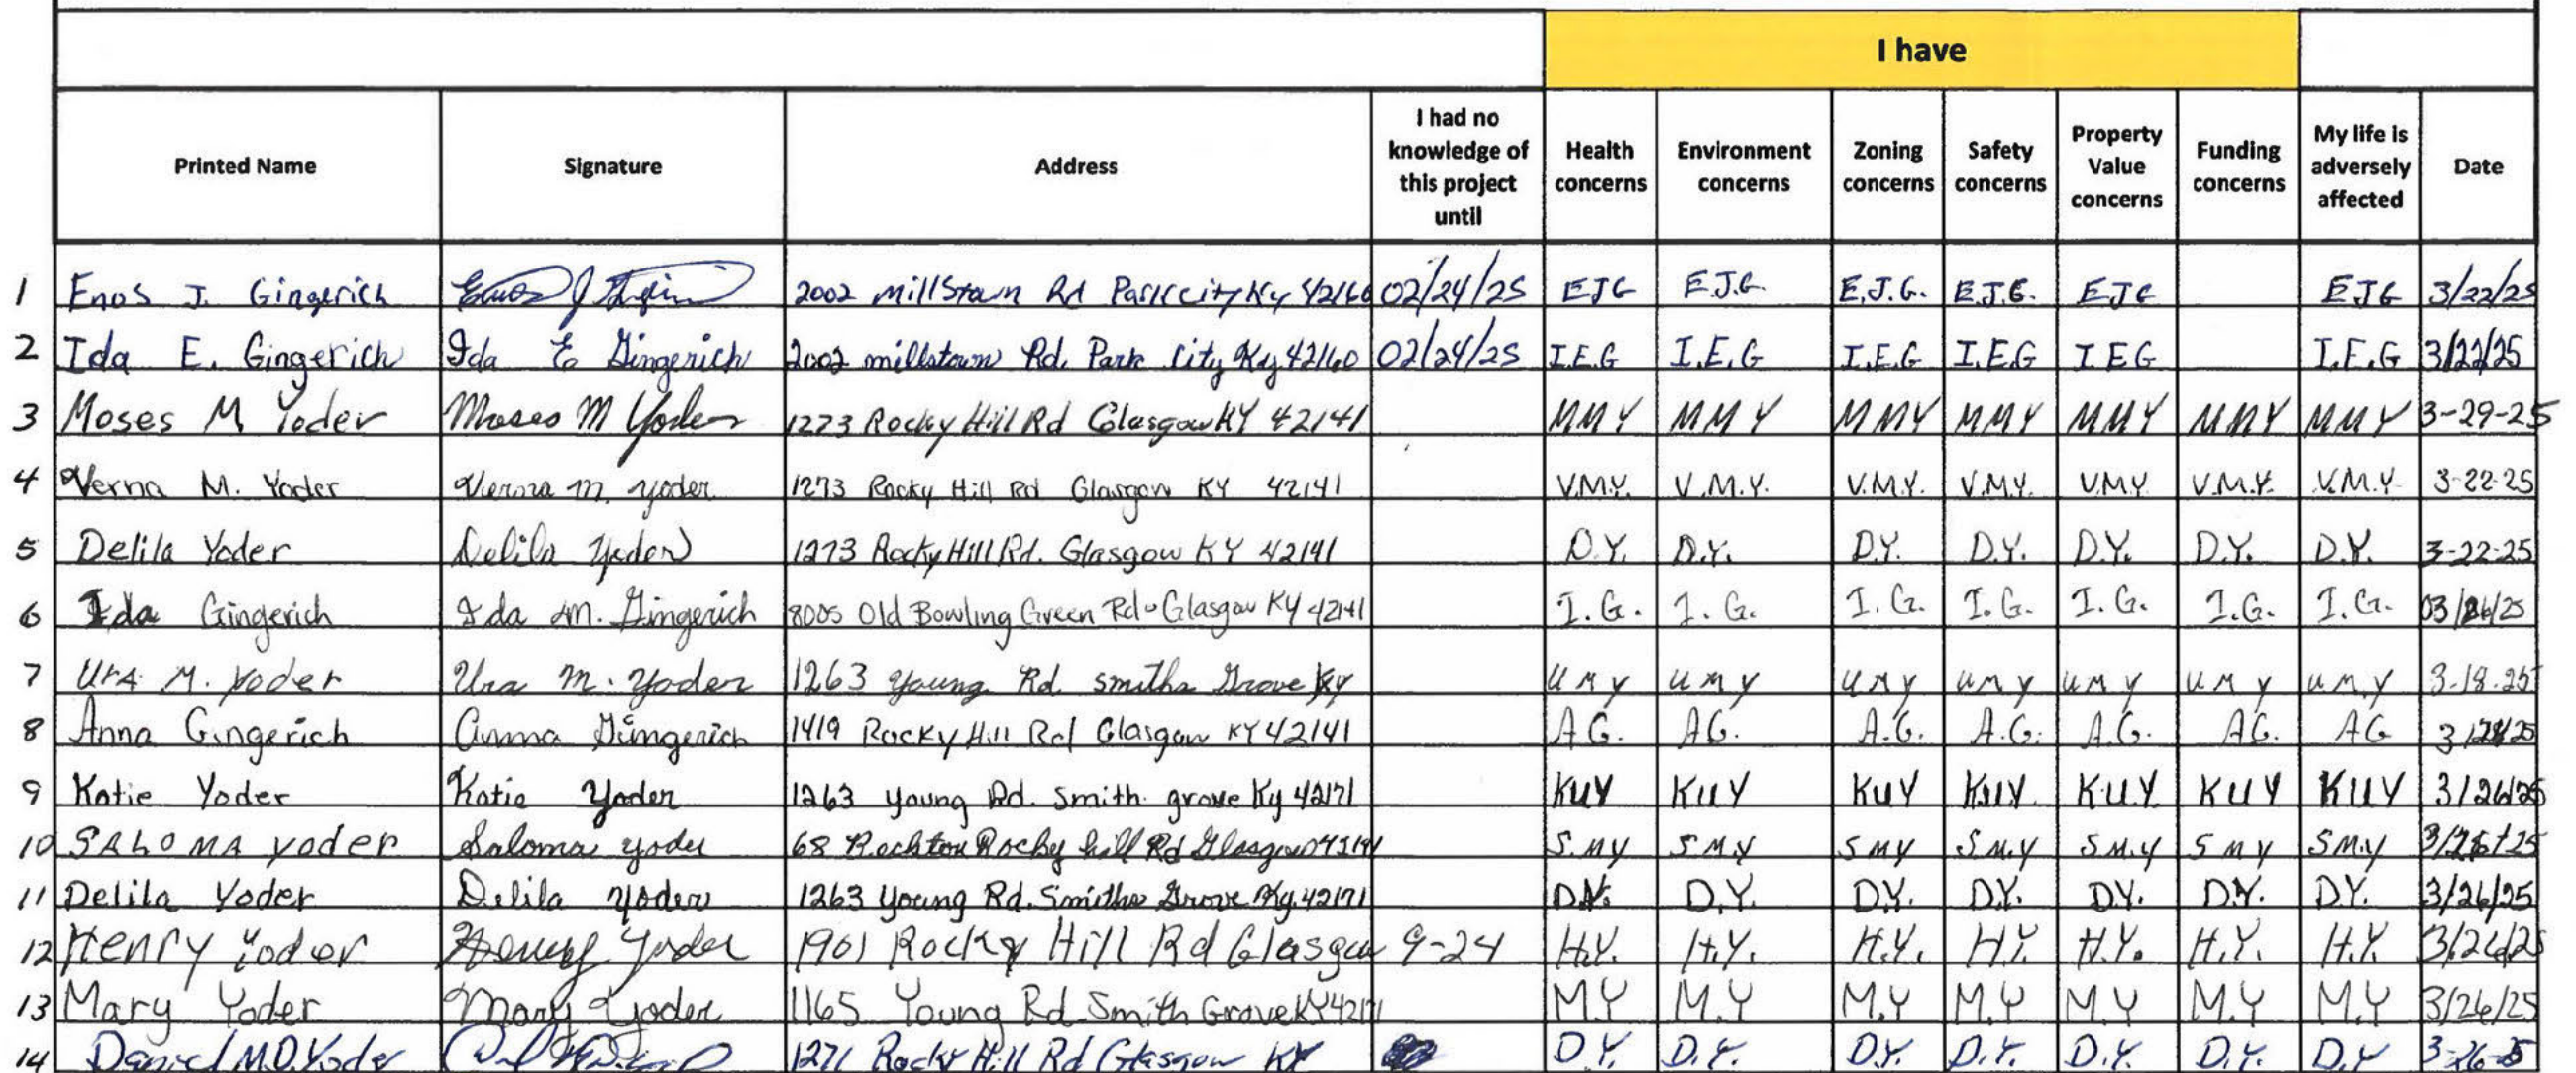 I have
Printed Name Signature Address I had no knowledge of this project until Health concerns Environment concerns Zoning concerns Safety concerns Property Value concerns Funding concerns My life is adversely affected Date
1 Enos J. Gingerich Enos J 2002 Millstown Rd Park city Ky 42160 02/24/25 EJG E.J.G. E.J.G. E.J.G. EJG EJG 3/22/25
2 Ida E. Gingerich Ida E Gingerich 2002 millstown Rd. Park City Ky 42160 02/24/25 I.E.G I.E.G I.E.G I.E.G I.E.G I.E.G 3/22/25
3 Moses M Yoder Moses M Yoder 1273 Rocky Hill Rd Glasgow KY 42141 MMY MMY MMY MMY MMY MMY MMY 3-29-25
4 Verna M. Yoder Verna M. Yoder 1273 Rocky Hill Rd Glasgow KY 42141 V.M.Y. V.M.Y. V.M.Y. V.M.Y. V.M.Y V.M.Y. V.M.Y 3-22-25
5 Delila Yoder Delila Yoder 1273 Rocky Hill Rd. Glasgow KY 42141 D.Y. D.Y. D.Y. D.Y. D.Y. D.Y. D.Y. 3-22-25
6 Ida Gingerich Ida M. Gingerich 8005 Old Bowling Green Rd Glasgow KY 42141 I.G. I.G. I.G. I.G. I.G. I.G. I.G.
7 Ura M. Yoder Ura M. Yoder 1263 Young Rd. Smiths Grove Ky UMY UMY UMY UMY UMY UMY UMY 3-18-25
8 Anna Gingerich Anna Gingerich 1419 Rocky Hill Rd Glasgow KY 42141 A.G. AG. A.G. A.G. A.G. AG. AG
9 Katie Yoder Katie Yoder 1263 Young Rd. Smith grove Ky 42171 KUY KUY KUY KUY K.U.Y. KUY KUY 3/26/25
10 SALOMA Yoder Saloma Yoder 68 Rocky hill Rd Glasgow S.MY S.M.Y SMY S.M.Y S.M.Y SMY SM.Y
11 Delila Yoder Delila Yoder 1263 Young Rd. Smiths Grove Ky. 42171 D.Y. D.Y. D.Y. D.Y. D.Y. D.Y. D.Y. 3/26/25
12 Henry Yoder Henry Yoder 1901 Rocky Hill Rd Glasgow 9-24 H.Y. H.Y. H.Y. H.Y. H.Y. H.Y. H.Y. 3/26/25
13 Mary Yoder Mary Yoder 1165 Young Rd. Smith Grove KY 42171 M.Y M.Y M.Y M.Y M.Y M.Y M.Y 3/26/25
14 Daniel M.D. Yoder 1271 Rocky Hill Rd Glasgow KY D.Y. D.Y. D.Y. D.Y. D.Y. D.Y. D.Y